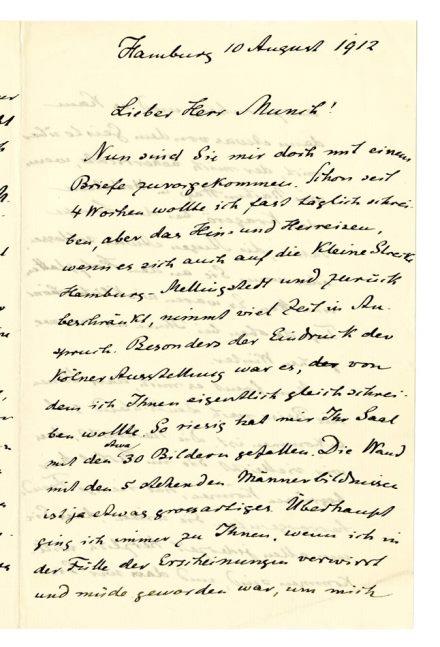 Hamburg 10 August 1912
Lieber Herr Munch!
Nun sind Sie mir doch mit einem
Briefe zuvorgekommen. Schon seit
4 Wochen wollte ich fast täglich schrei-
ben, aber das Hin- und Herreisen,
wenn es sich auch auf die kleine Strecke
Hamburg - und zurück
beschränkt, nimmt viel Zeit in An-
spruch. Besonders der Eindruck der
Kölner Ausstellung war es, der von
dem ich Ihnen eigentlich gleich schrei-
ben wollte. So riesig hat mir Ihr Saal
mit den etwa 30 Bildern gefallen. Die Wand
mit den 5 stehenden Männerbildnissen
ist ja etwas grossartiges. Überhaupt
ging ich immer zu Ihnen, wenn ich in
der Fülle der Erscheinungen verwirrt
und müde geworden war, um mich